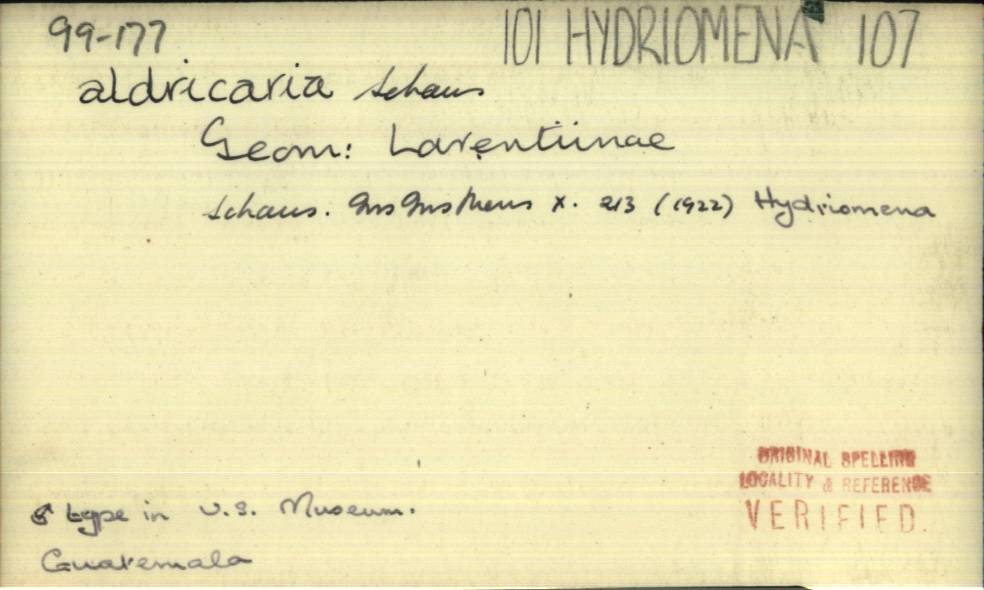 99-177 101 HYDRIOMENA 107
aldricaria Schaus
Geom: Larentiinae
Schaus. Ins Ins Mens X. 213 (1922) Hydriomena
ORIGINAL SPELLING
LOCALITY & REFERENCE
VERIFIED.
♂ type in U.S. Museum.
Guatemala